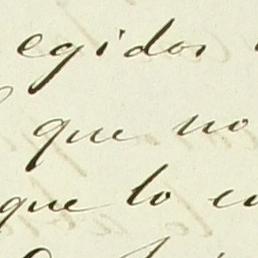 egidos
que no
que lo en